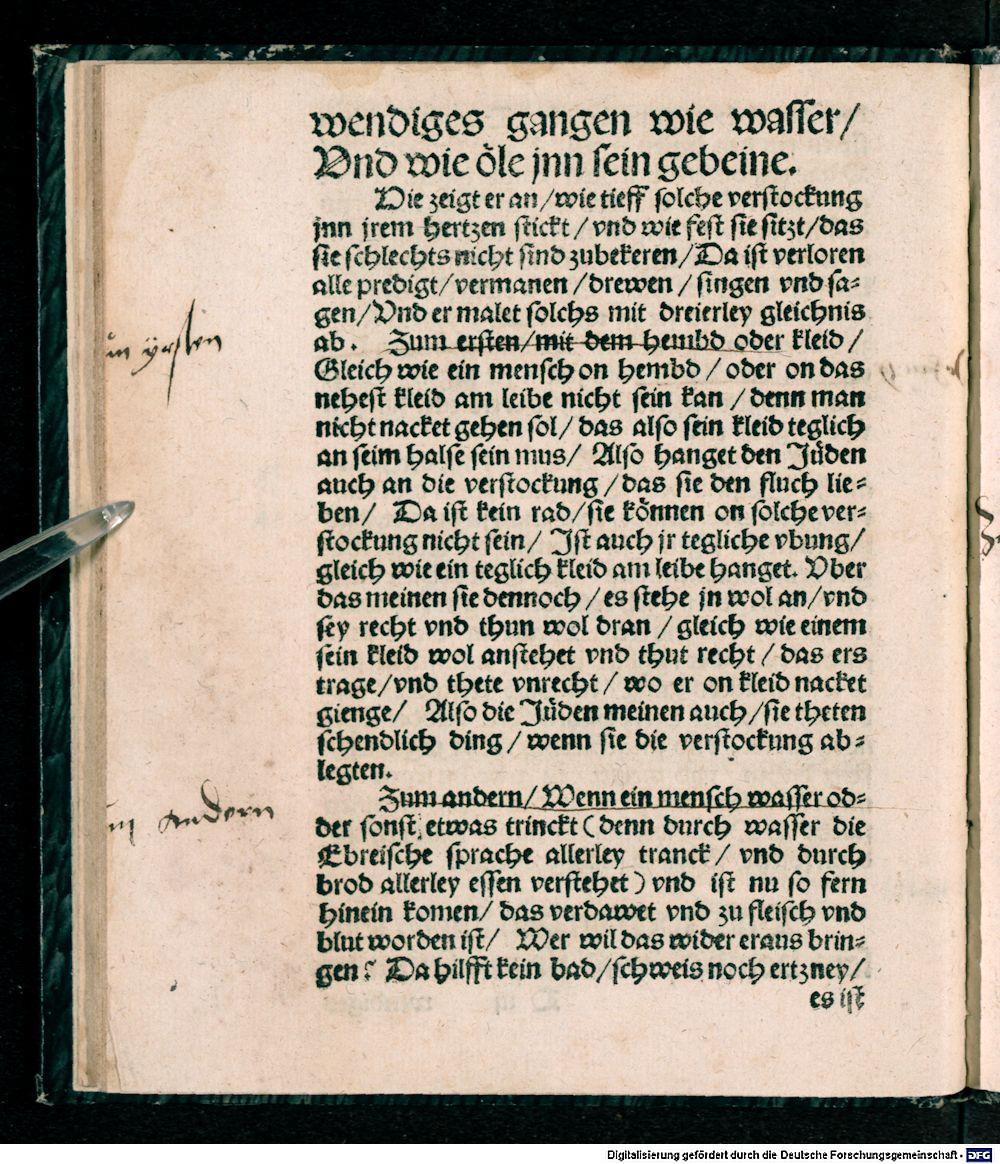 wendiges gangen wie wasser/
Vnd wie öle jnn sein gebeine.
Die zeigt er an/wie tieff solche verstockung
jnn jrem hertzen stickt/vnd wie fest sie sitzt/das
sie schlechts nicht sind zubekeren/Da ist verloren
alle predigt/vermanen/drewen/singen vnd sa-
gen/Vnd er malet solchs mit dreierley gleichnis
ab. Zum ersten/mit dem hembd oder kleid/
Gleich wie ein mensch on hembd/oder on das
nehest kleid am leibe nicht sein kan/denn man
nicht nacket gehen sol/das also sein kleid teglich
an seim halse sein mus/ Also hanget den Jüden
auch an die verstockung/das sie den fluch lie-
ben/ Da ist kein rad/sie können on solche ver-
stockung nicht sein/ Ist auch jr tegliche vbung/
gleich wie ein teglich kleid am leibe hanget. Vber
das meinen sie dennoch/es stehe jn wol an/vnd
sey recht vnd thun wol dran/gleich wie einem
sein kleid wol anstehet vnd thut recht/das ers
trage/vnd thete vnrecht/wo er on kleid nacket
gienge/ Also die Jüden meinen auch/sie theten
schendlich ding/wenn sie die verstockung ab-
legten.
Zum andern/Wenn ein mensch wasser od-
der sonst etwas trinckt (denn durch wasser die
Ebreische sprache allerley tranck/vnd durch
brod allerley essen verstehet) vnd ist nu so fern
hinein komen/das verdawet vnd zu fleisch vnd
blut worden ist/ Wer wil das wider eraus brin-
gen? Da hilfft kein bad/schweis noch ertzney/
es ist
yrsten
andern
Digitalisierung gefördert durch die Deutsche Forschungsgemeinschaft - DFG